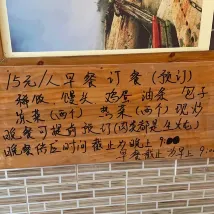 15元/1人早餐订餐(预订)
稀饭 馒头 鸡蛋 油条 包子
凉菜(两个) 热菜(两个)现炒
晚餐可提前预订(肉菜都是
晚餐供应时间截止为晚上9:00
早餐截止为早上9:00